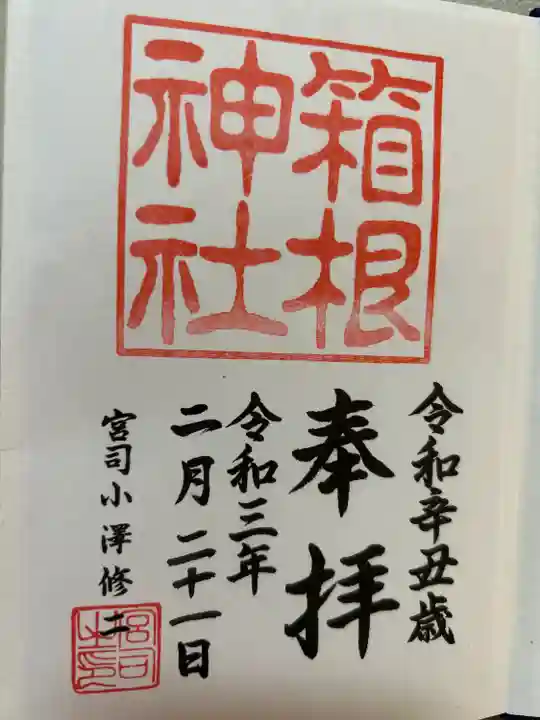 箱根
神社
令和辛丑歳
奉拝
令和三年
二月二十一日
宮司小澤修二
宮司之印